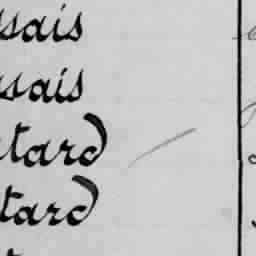 ssais
ssais
tard
tard